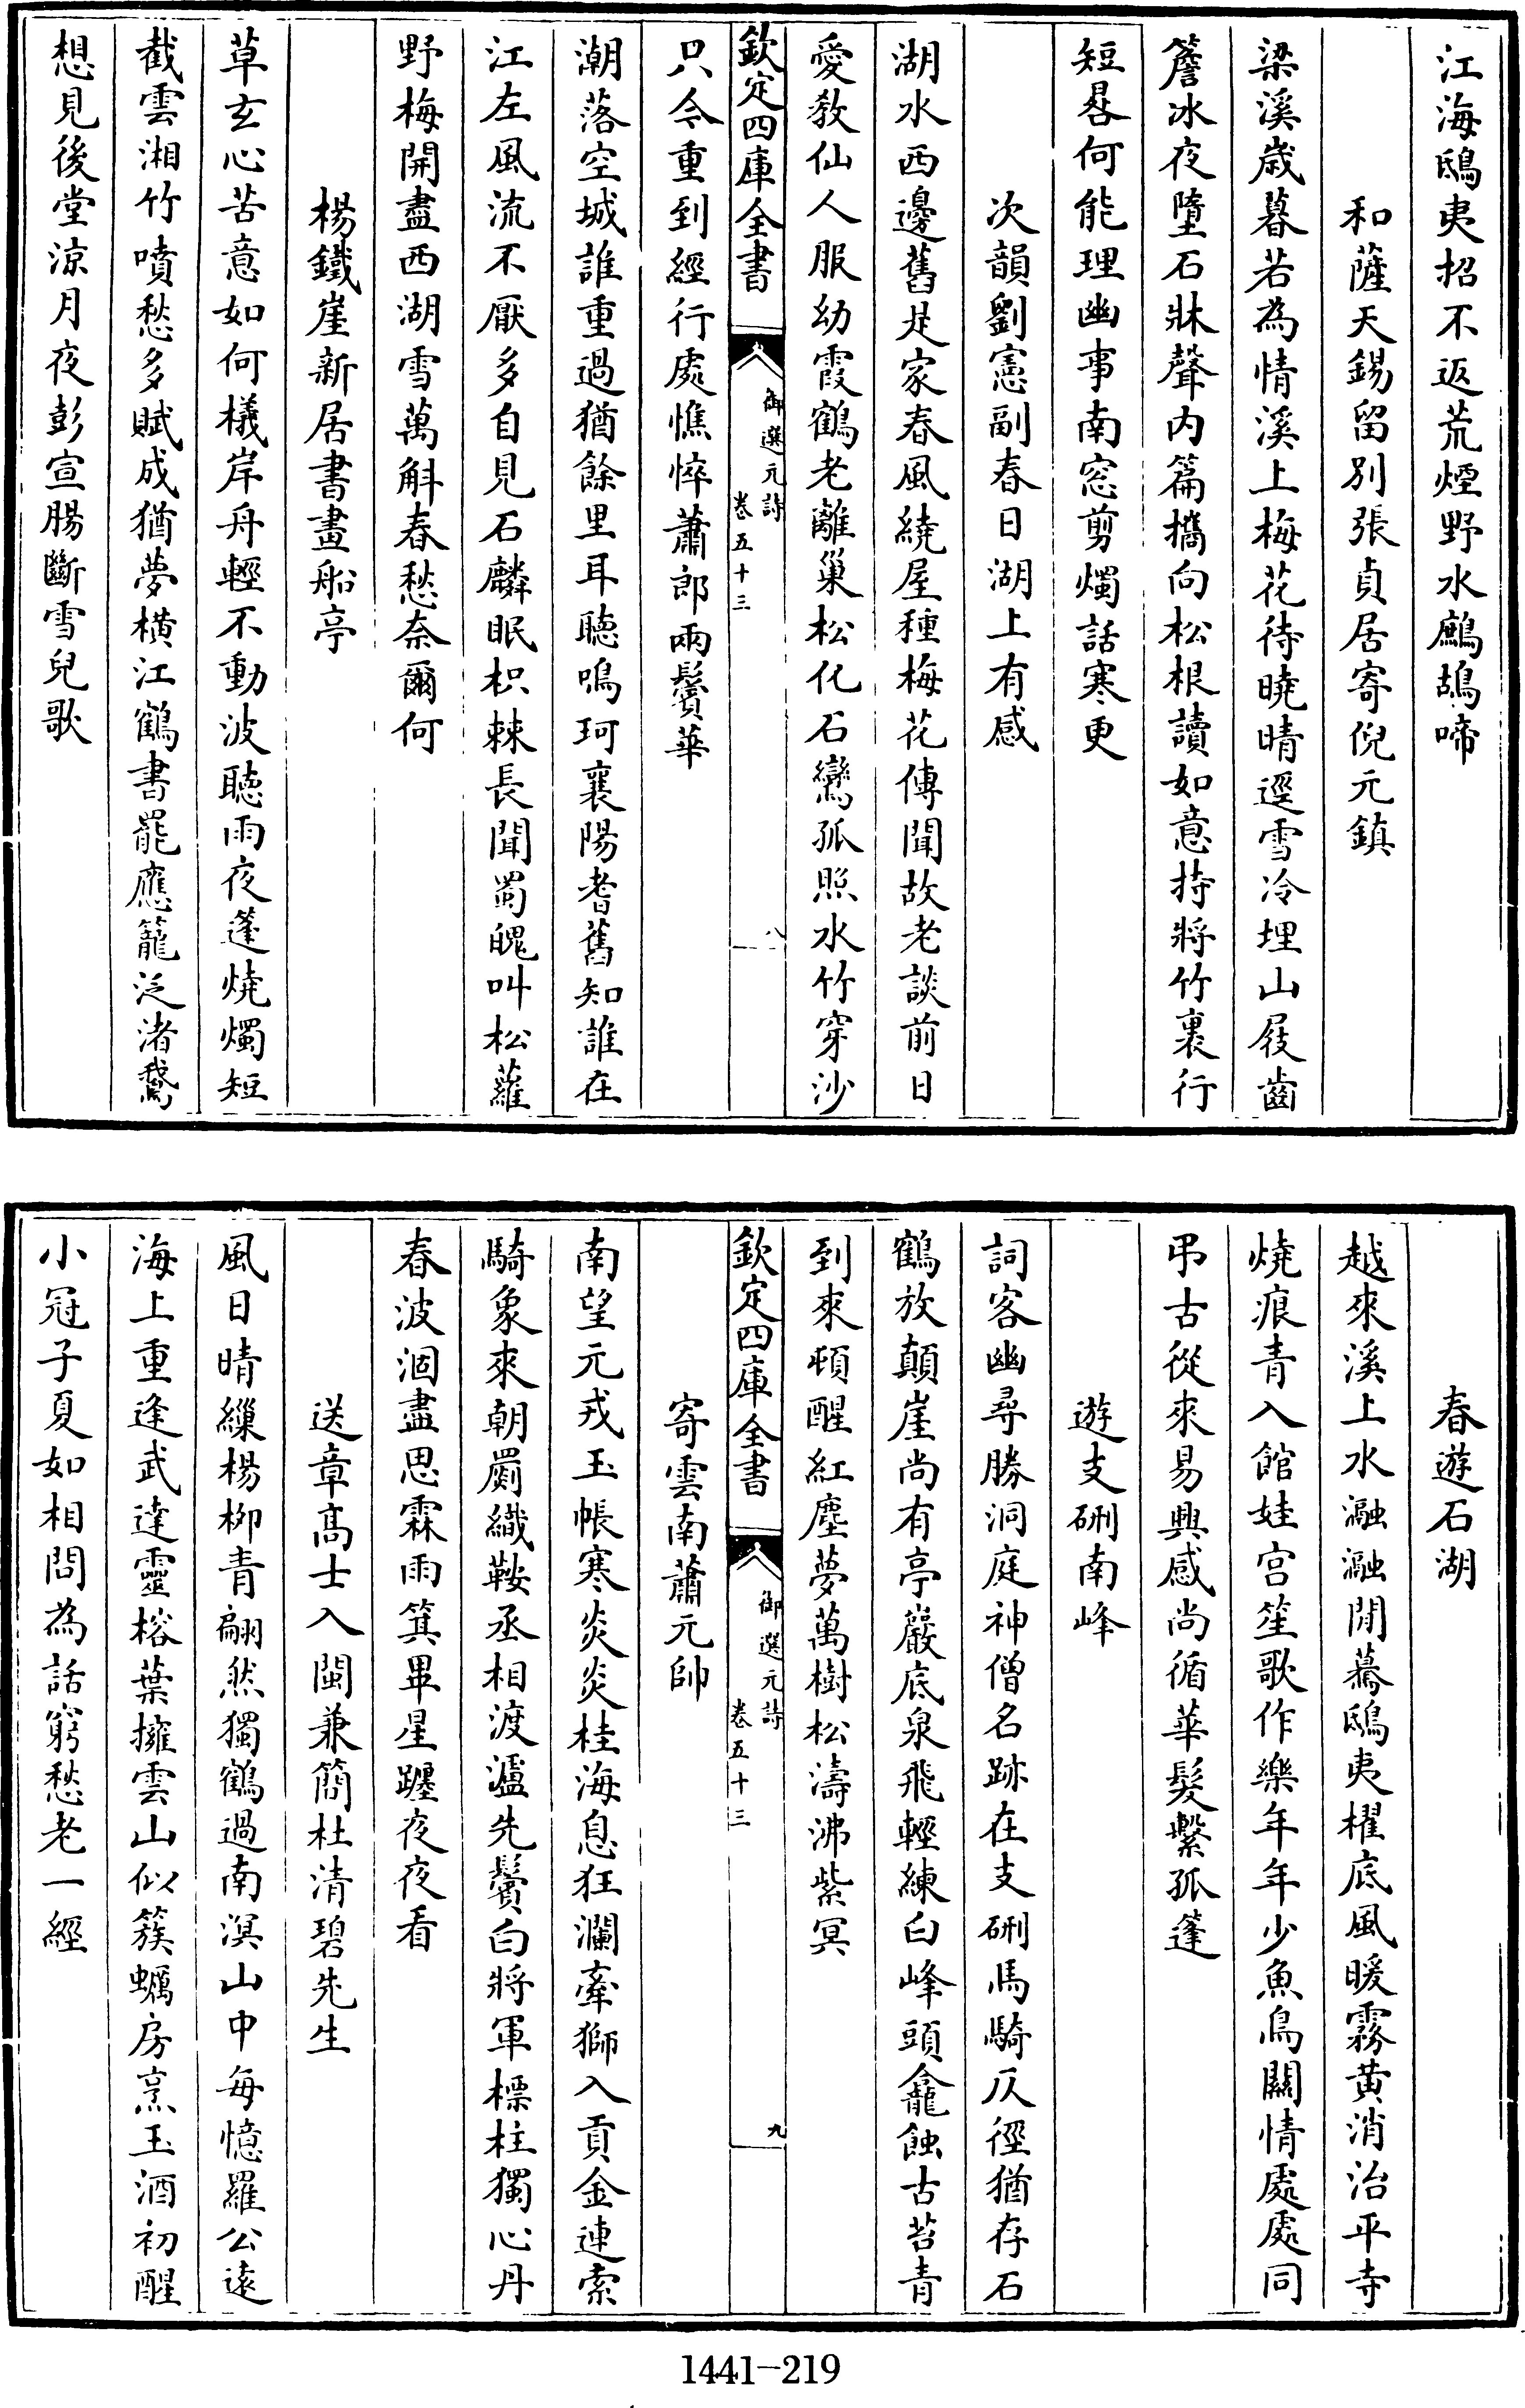 江海鴟夷招不返荒煙野水鷓鴣啼
和薩天錫留別張貞居寄倪元鎮
梁溪歲暮若為情溪上梅花待曉晴逕雪冷埋山屐齒
簷冰夜墮石牀聲内篇攜向松根讀如意持將竹裏行
短晷何能理幽事南窓剪燭話寒更
次韻劉憲副春日湖上有感
湖水西邊舊是家春風繞屋種梅花傳聞故老談前日
愛教仙人服幼霞鶴老離巢松化石鸞孤照水竹穿沙
只今重到經行處憔悴蕭郎兩鬢華
欽定四庫全書
御選元詩
卷五十三
八
潮落空城誰重過猶餘里耳聽鳴珂襄陽耆舊知誰在
江左風流不厭多自見石麟眠枳棘長聞蜀魄叫松蘿
野梅開盡西湖雪萬斛春愁奈爾何
楊鐵崖新居書畫船亭
草玄心苦意如何檥岸舟輕不動波聽雨夜篷燒燭短
截雲湘竹噴愁多賦成猶夢橫江鶴書罷應籠泛渚鵞
想見後堂涼月夜彭宣腸斷雪兒歌
春遊石湖
越來溪上水瀜瀜閒驀鴟夷櫂底風暖霧黄消治平寺
燒痕青入館娃宫笙歌作樂年年少魚鳥關情處處同
弔古從來易興感尚循華髮繫孤篷
遊支硎南峰
詞客幽尋勝洞庭神僧名跡在支硎馬騎仄徑猶存石
鶴放顛崖尚有亭巖底泉飛輕練白峰頭龕蝕古苔青
到來頓醒紅塵夢萬樹松濤沸紫冥
欽定四庫全書
御選元詩
卷五十三
九
寄雲南蕭元帥
南望元戎玉帳寒炎炎桂海息狂瀾牽獅入貢金連索
騎象來朝罽織鞍丞相渡瀘先鬢白將軍標柱獨心丹
春波涸盡思霖雨箕畢星躔夜夜看
送章髙士入閩兼簡杜清碧先生
風日晴繅楊栁青翩然獨鶴過南溟山中每憶羅公遠
海上重逢武達靈榕葉擁雲山似簇蠣房烹玉酒初醒
小冠子夏如相問為話窮愁老一經
1441-219